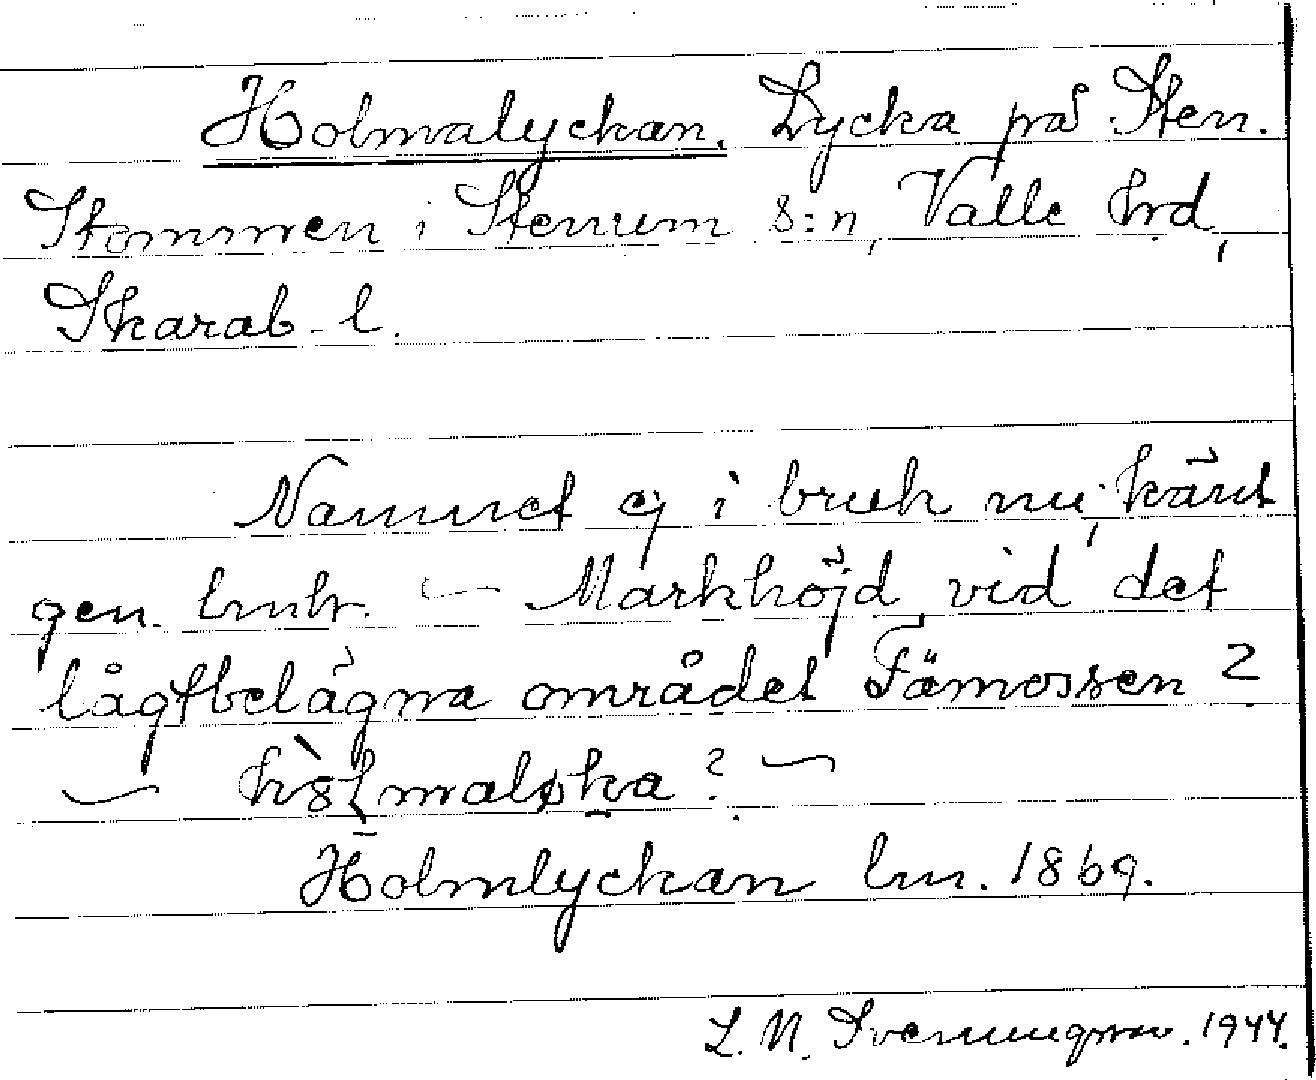 Holmalyckan. Lycka på Sten.
Stommen i Stenum s:n, Valle hrd,
Skarab. l.
Namnet ej i bruk nu; känt
gen. lmhr. — Markhöjd vid det
lågtbelägna området Fämossen ?
— ? —
Holmlyckan lm. 1869.
L. N. Svenungsson. 1944.